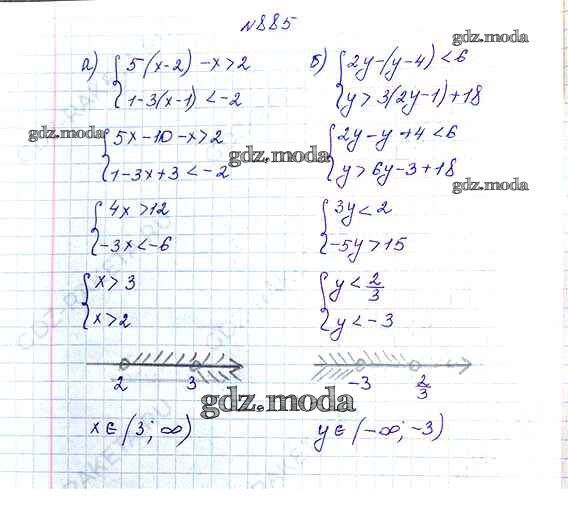 №885
а) { 5(x-2) -x>2
1-3(x-1) <-2
{ 5x-10-x>2
1-3x+3<-2
{ 4x>12
-3x<-6
{ x>3
x>2
2 3
x∈(3; ∞)
б) { 2y-(y-4)<6
y>3(2y-1)+18
{ 2y-y+4<6
y>6y-3+18
{ 3y<2
-5y>15
{ y<2/3
y<-3
-3 2/3
y∈(-∞; -3)
gdz.moda
gdz.moda
gdz.moda
gdz.moda
gdz.moda